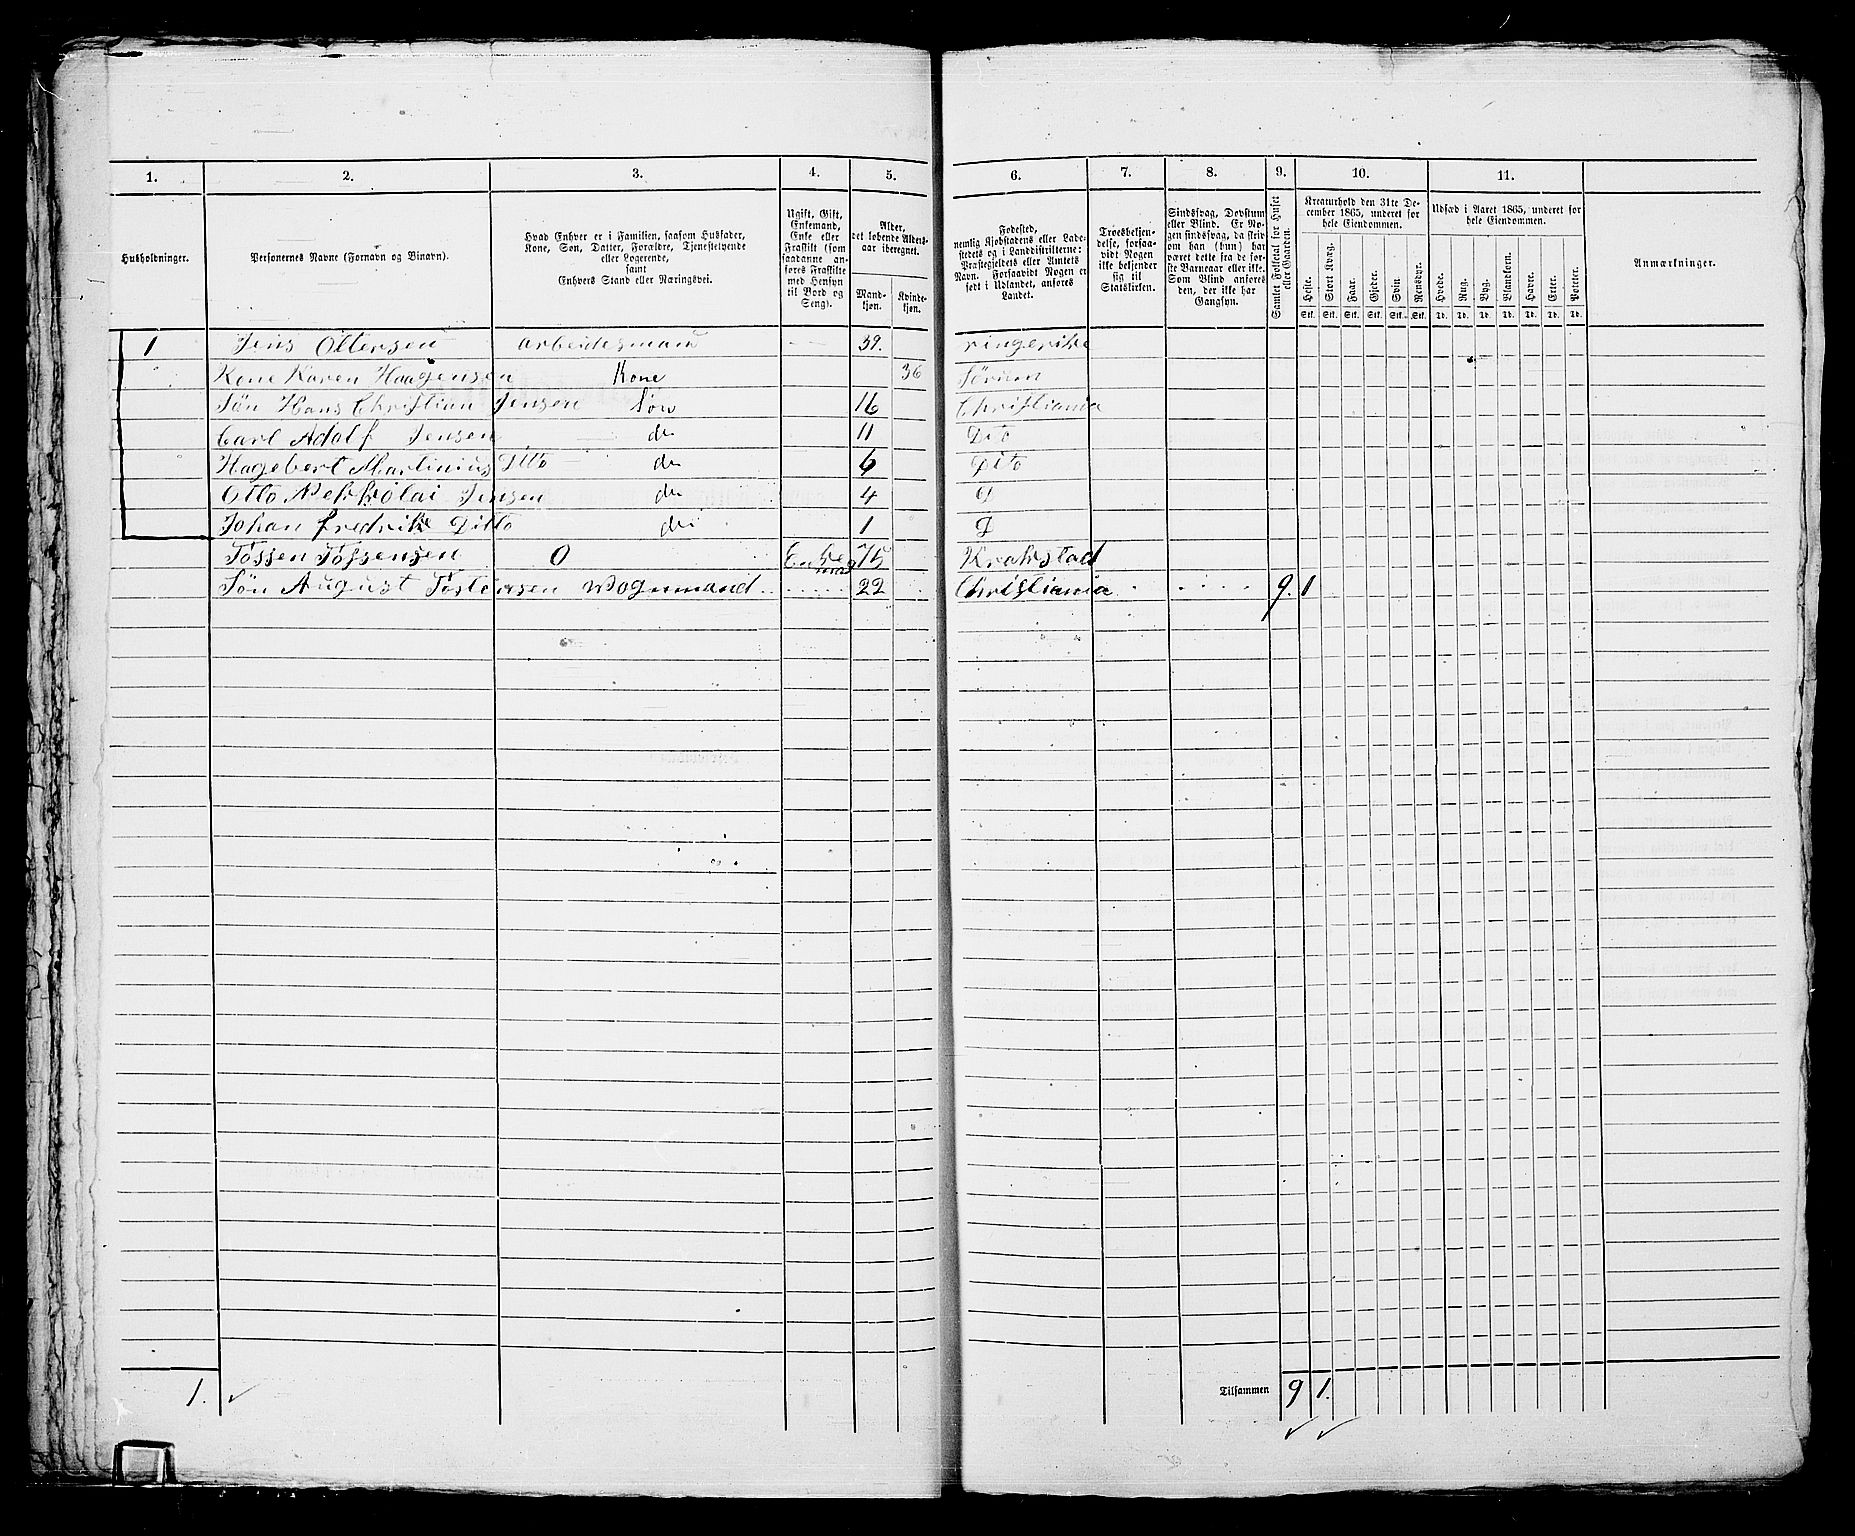 1. 2. 3. 4. 5. 6. 7. 8. 9. 10. 11.
Husholdninger.
Personernes Navne (Fornavn og Binavn).
Hvad Enhver er i Familien, saasom Husfader,
Kone, Søn, Datter, Forældre, Tjenestetyende
eller Logerende,
samt
Enhvers Stand eller Næringsvei.
Ugift, Gift,
Enkemand,
Enke eller
Fraskilt (som
saadanne an-
føres Fraskilte
med Hensyn
til Bord og
Seng).
Alder,
det løbende Alders-
aar iberegnet.
Mand-
kjøn.
Kvinde-
kjøn.
Fødested,
nemlig Kjøbstadens eller Lade-
stedets og i Landdistrikterne:
Præstegjeldets eller Amtets
Navn. Forsaavidt Nogen er
født i Udlandet, anføres
Landet.
Troesbekjen-
delse, forsaa-
vidt Nogen
ikke bekjender
sig til
Statskirken.
Sindssvag, Døvstum
eller Blind. Er No-
gen sindssvag, da skriv
om han (hun) har
været dette fra de før-
ste Barneaar eller ikke.
Som Blind anføres
den, der ikke har
Gangsyn.
Samlet Folketal for Huset
eller Gaarden.
Kreaturhold den 31te De-
cember 1865, underet for
hele Eiendommen.
Heste. Stort Kvæg. Faar. Gjeder. Svin. Rensdyr.
Stk. Stk. Stk. Stk. Stk. Stk.
Udsæd i Aaret 1865, underet for
hele Eiendommen.
Hvede. Rug. Byg. Blankorn. Havre. Erter. Poteter.
Td. Td. Td. Td. Td. Td. Td.
Anmærkninger.
1 Jens Ottersen arbeidesmand 39. ringerike
Kone Karen Haagensen Kone 36 Sørum
Søn Hans Christian Jensen Søn 16 Christiania
Carl Adolf Jensen do 11 Dito
Hagebert Martinius Ditto do 6 Dito
Otto Jensen do 4 D
Johan fredrik Ditto do 1 D
0 Enke mand 75 Krakstad
Søn August Tostensen Wognmand 22 Christiania 9. 1
1. Tilsammen 9 1.